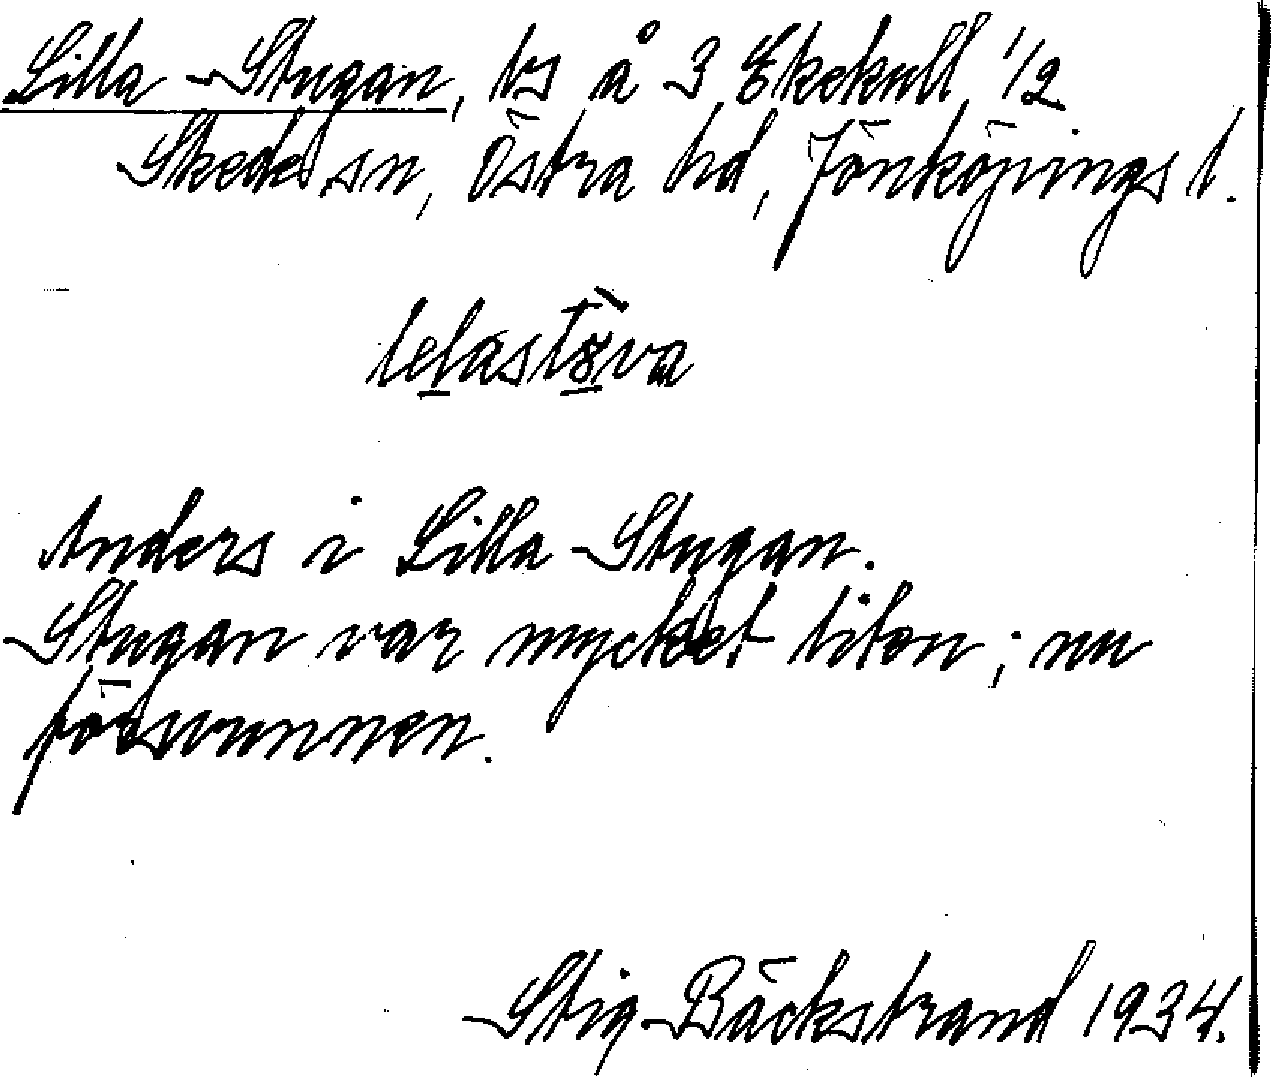 Lilla-Stugan, ls å 3 Ekekull 1/2
Skeds sn, Östra hd, Jönköpings l.
lelastöva
Anders i Lilla-Stugan.
Stugan var mycket liten; nu
försvunnen.
Stig Bäckstrand 1934.